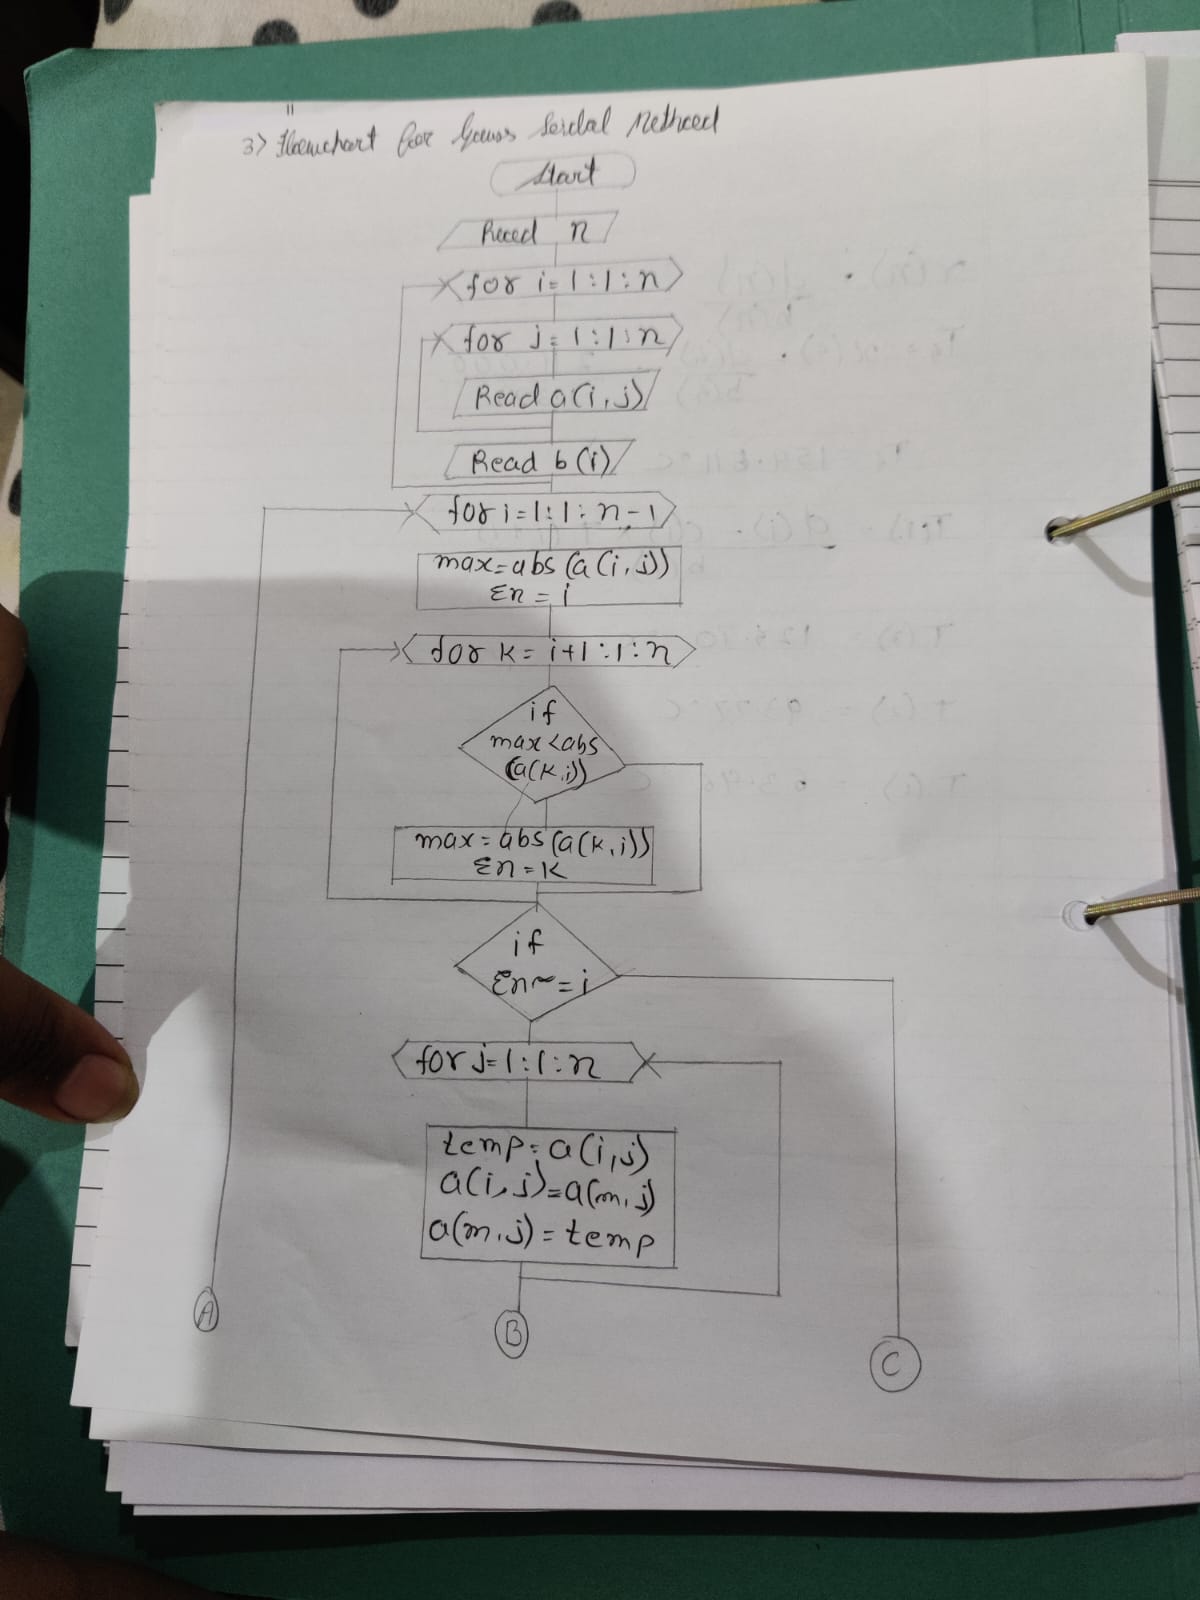 3> Flowchart for Gauss Seidal Method
Start
Read n
for i=1:1:n
for j=1:1:n
Read a(i,j)
Read b(i)
for i=1:1:n-1
max=abs(a(i,j))
En=i
for k=i+1:1:n
if
max<abs
(a(k,i))
max=abs(a(k,i))
En=k
if
En~=i
for j=1:1:n
temp=a(i,j)
a(i,j)=a(m,j)
a(m,j)=temp
A
B
C